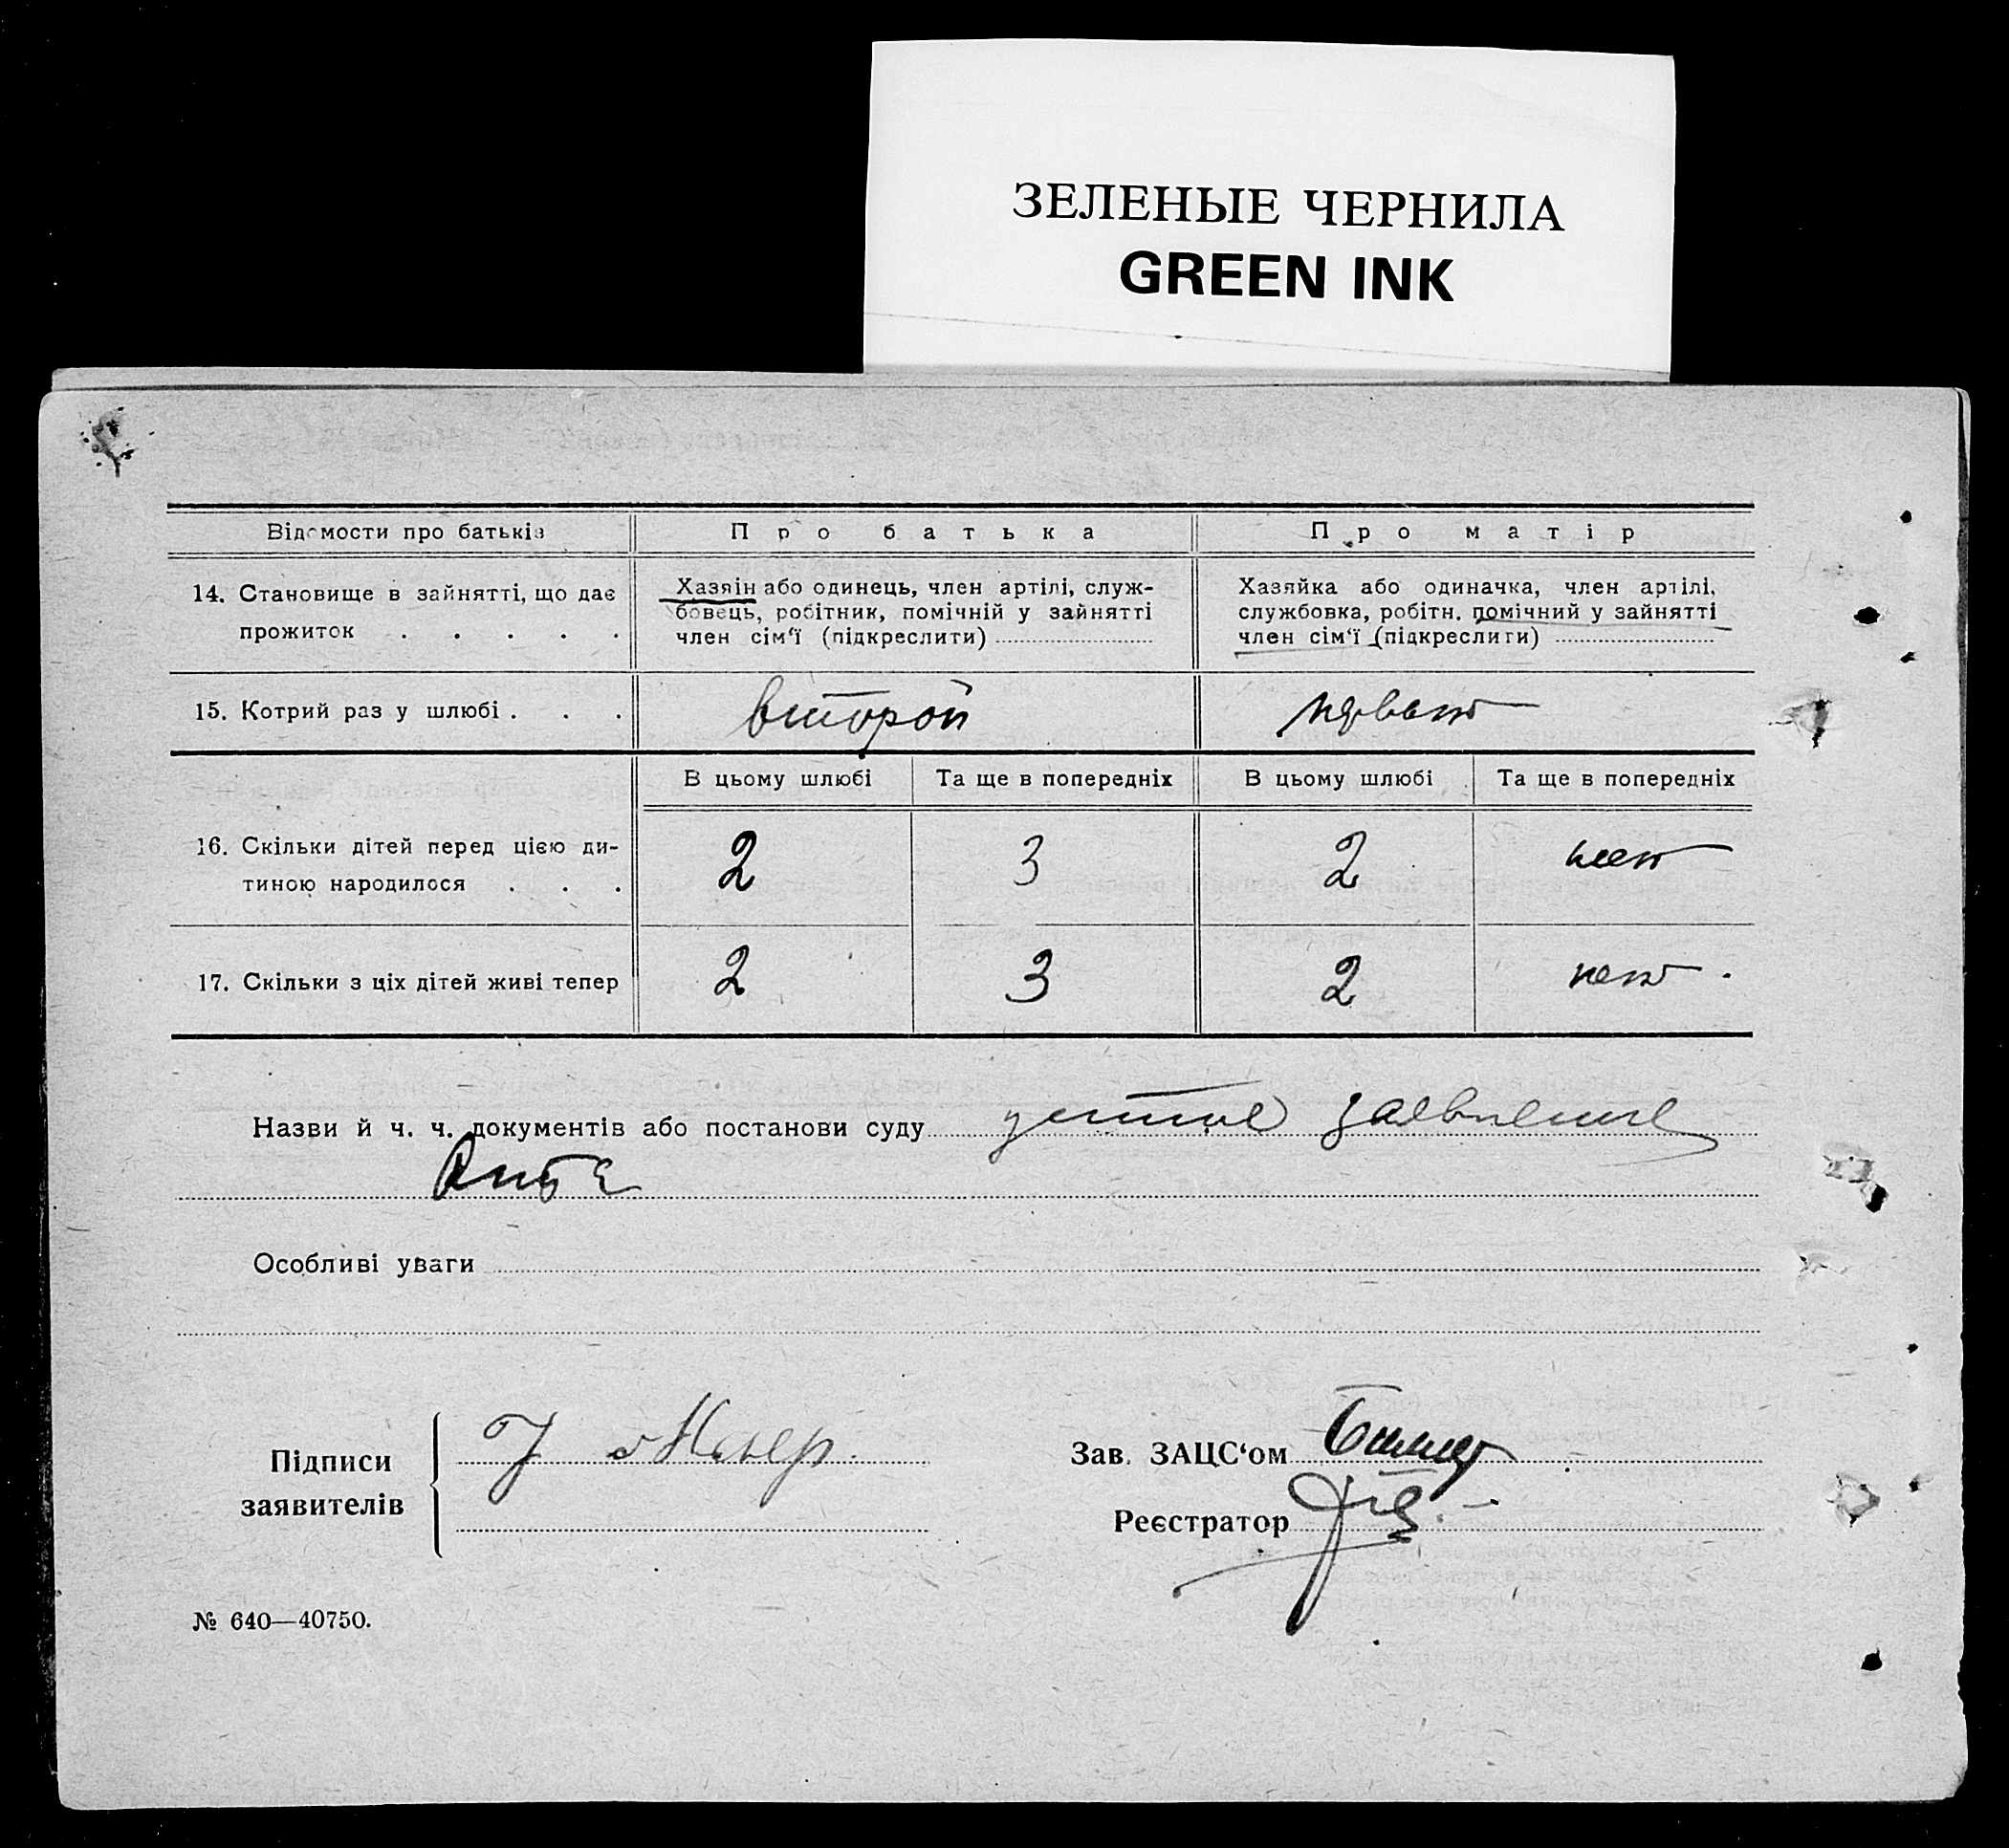 ЗЕЛЕНЫЕ ЧЕРНИЛА
GREEN INK
Відомости про батьків
Про батька
Про матір
14. Становище в зайнятті, що дає
прожиток . . . . .
Хазяін або одинець, член артілі, служ-
бовець, робітник, помічній у зайнятті
член сім‘ї (підкреслити)
Хазяйка або одиначка, член артілі,
службовка, робітн. помічний у зайнятті
член сім‘ї (підкреслити)
15. Котрий раз у шлюбі . . .
второй
В цьому шлюбі
Та ще в попередніх
В цьому шлюбі
Та ще в попередніх
16. Скільки дітей перед цією ди-
тиною народилося . . .
2
3
2
нет
17. Скільки з ціх дітей живі тепер
2
3
2
нет.
Назви й ч. ч. документів або постанови суду устное заявление
Особливі уваги
Підписи
заявителів
Зав. ЗАЦС‘ом
Реєстратор
№ 640—40750.